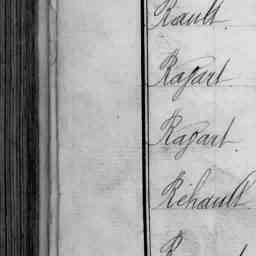 Rault.
Ragart
Ragart.
Réhault